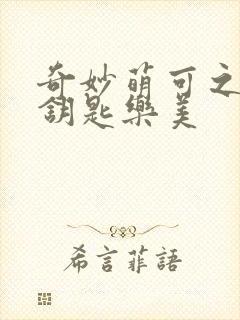 奇妙萌可之
鑰匙樂美
希言菲語